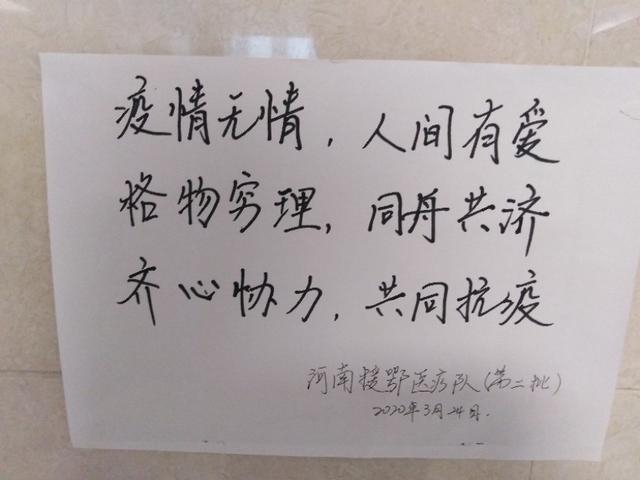 疫情无情，人间有爱
格物穷理，同舟共济
齐心协力，共同抗疫
河南援鄂医疗队（第二批）
2020年3月24日.